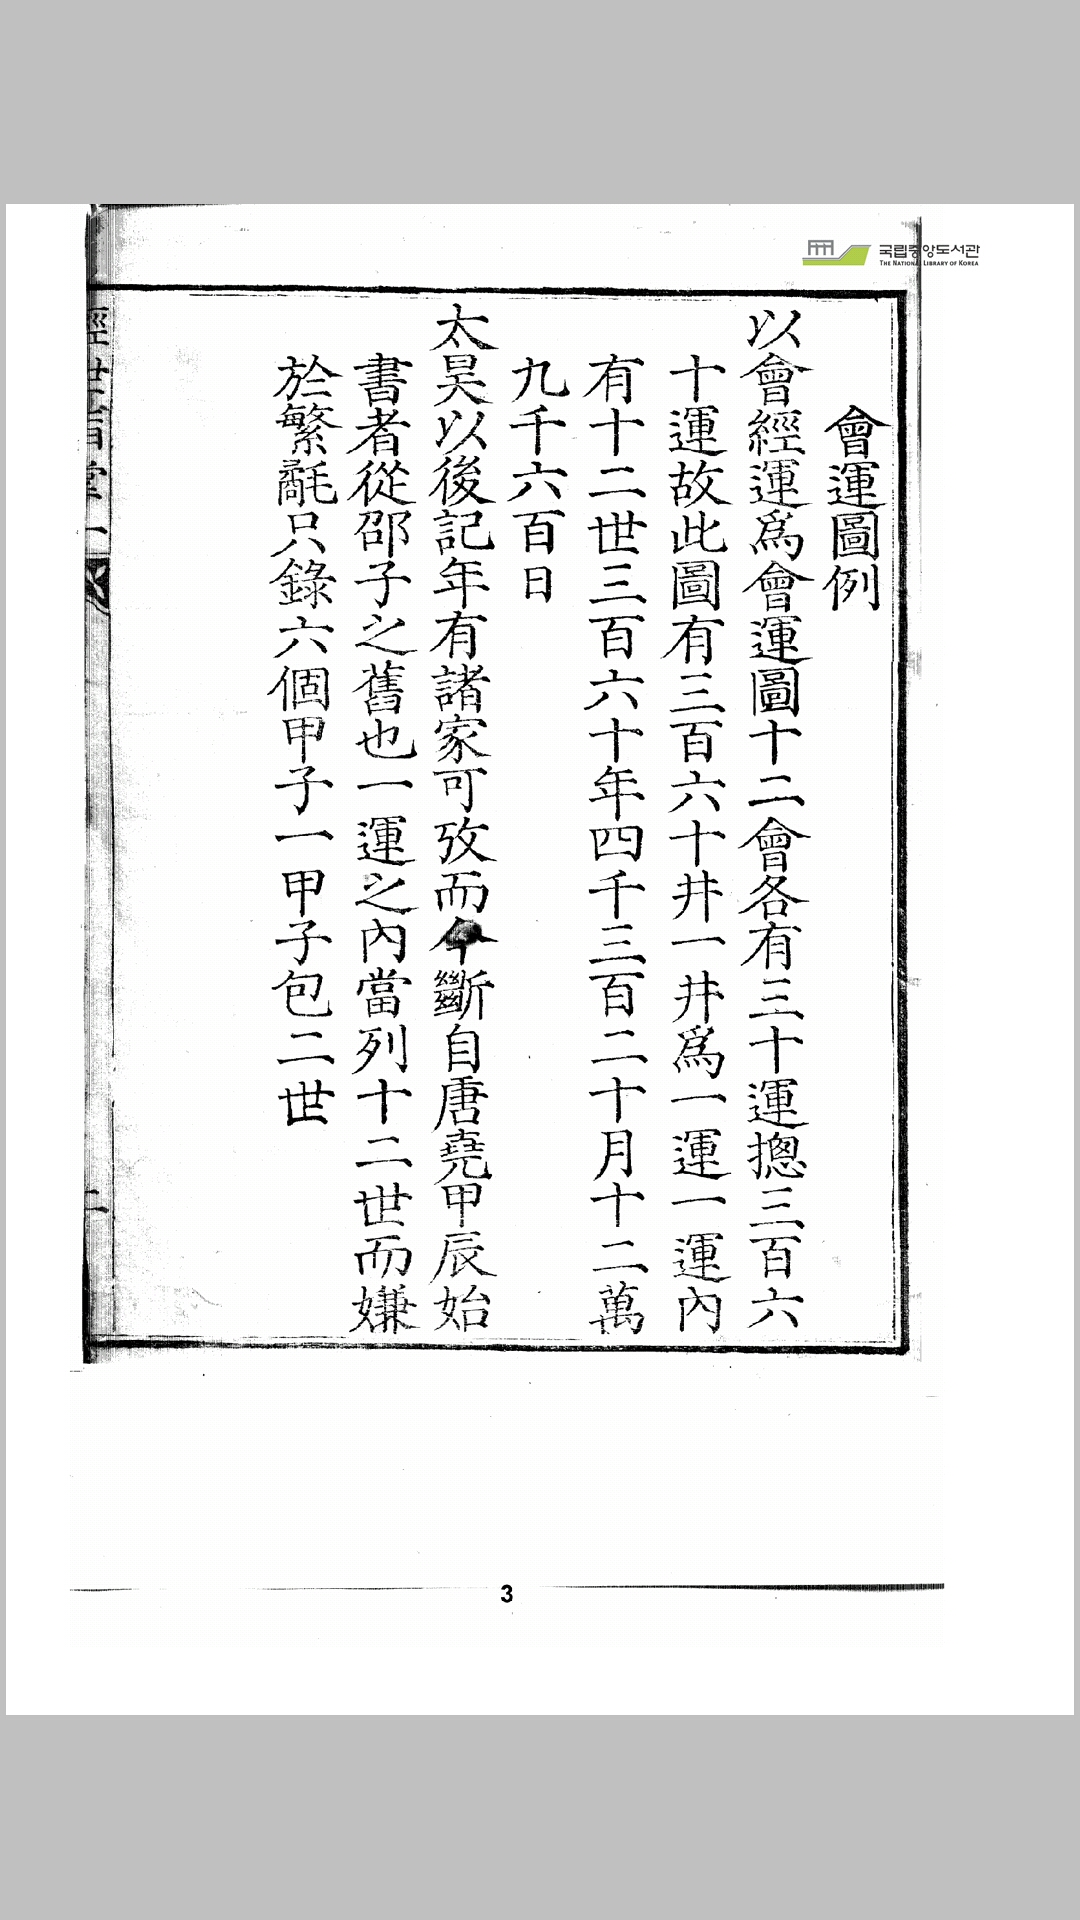 국립중앙도서관
THE NATIONAL LIBRARY OF KOREA
會運圖例
以會經運爲會運圖十二會各有三十運摠三百六
十運故此圖有三百六十井一井爲一運一運內
有十二世三百六十年四千三百二十月十二萬
九千六百日
太昊以後記年有諸家可攷而今斷自唐堯甲辰始
書者從邵子之舊也一運之內當列十二世而嫌
於繁氄只錄六個甲子一甲子包二世
3